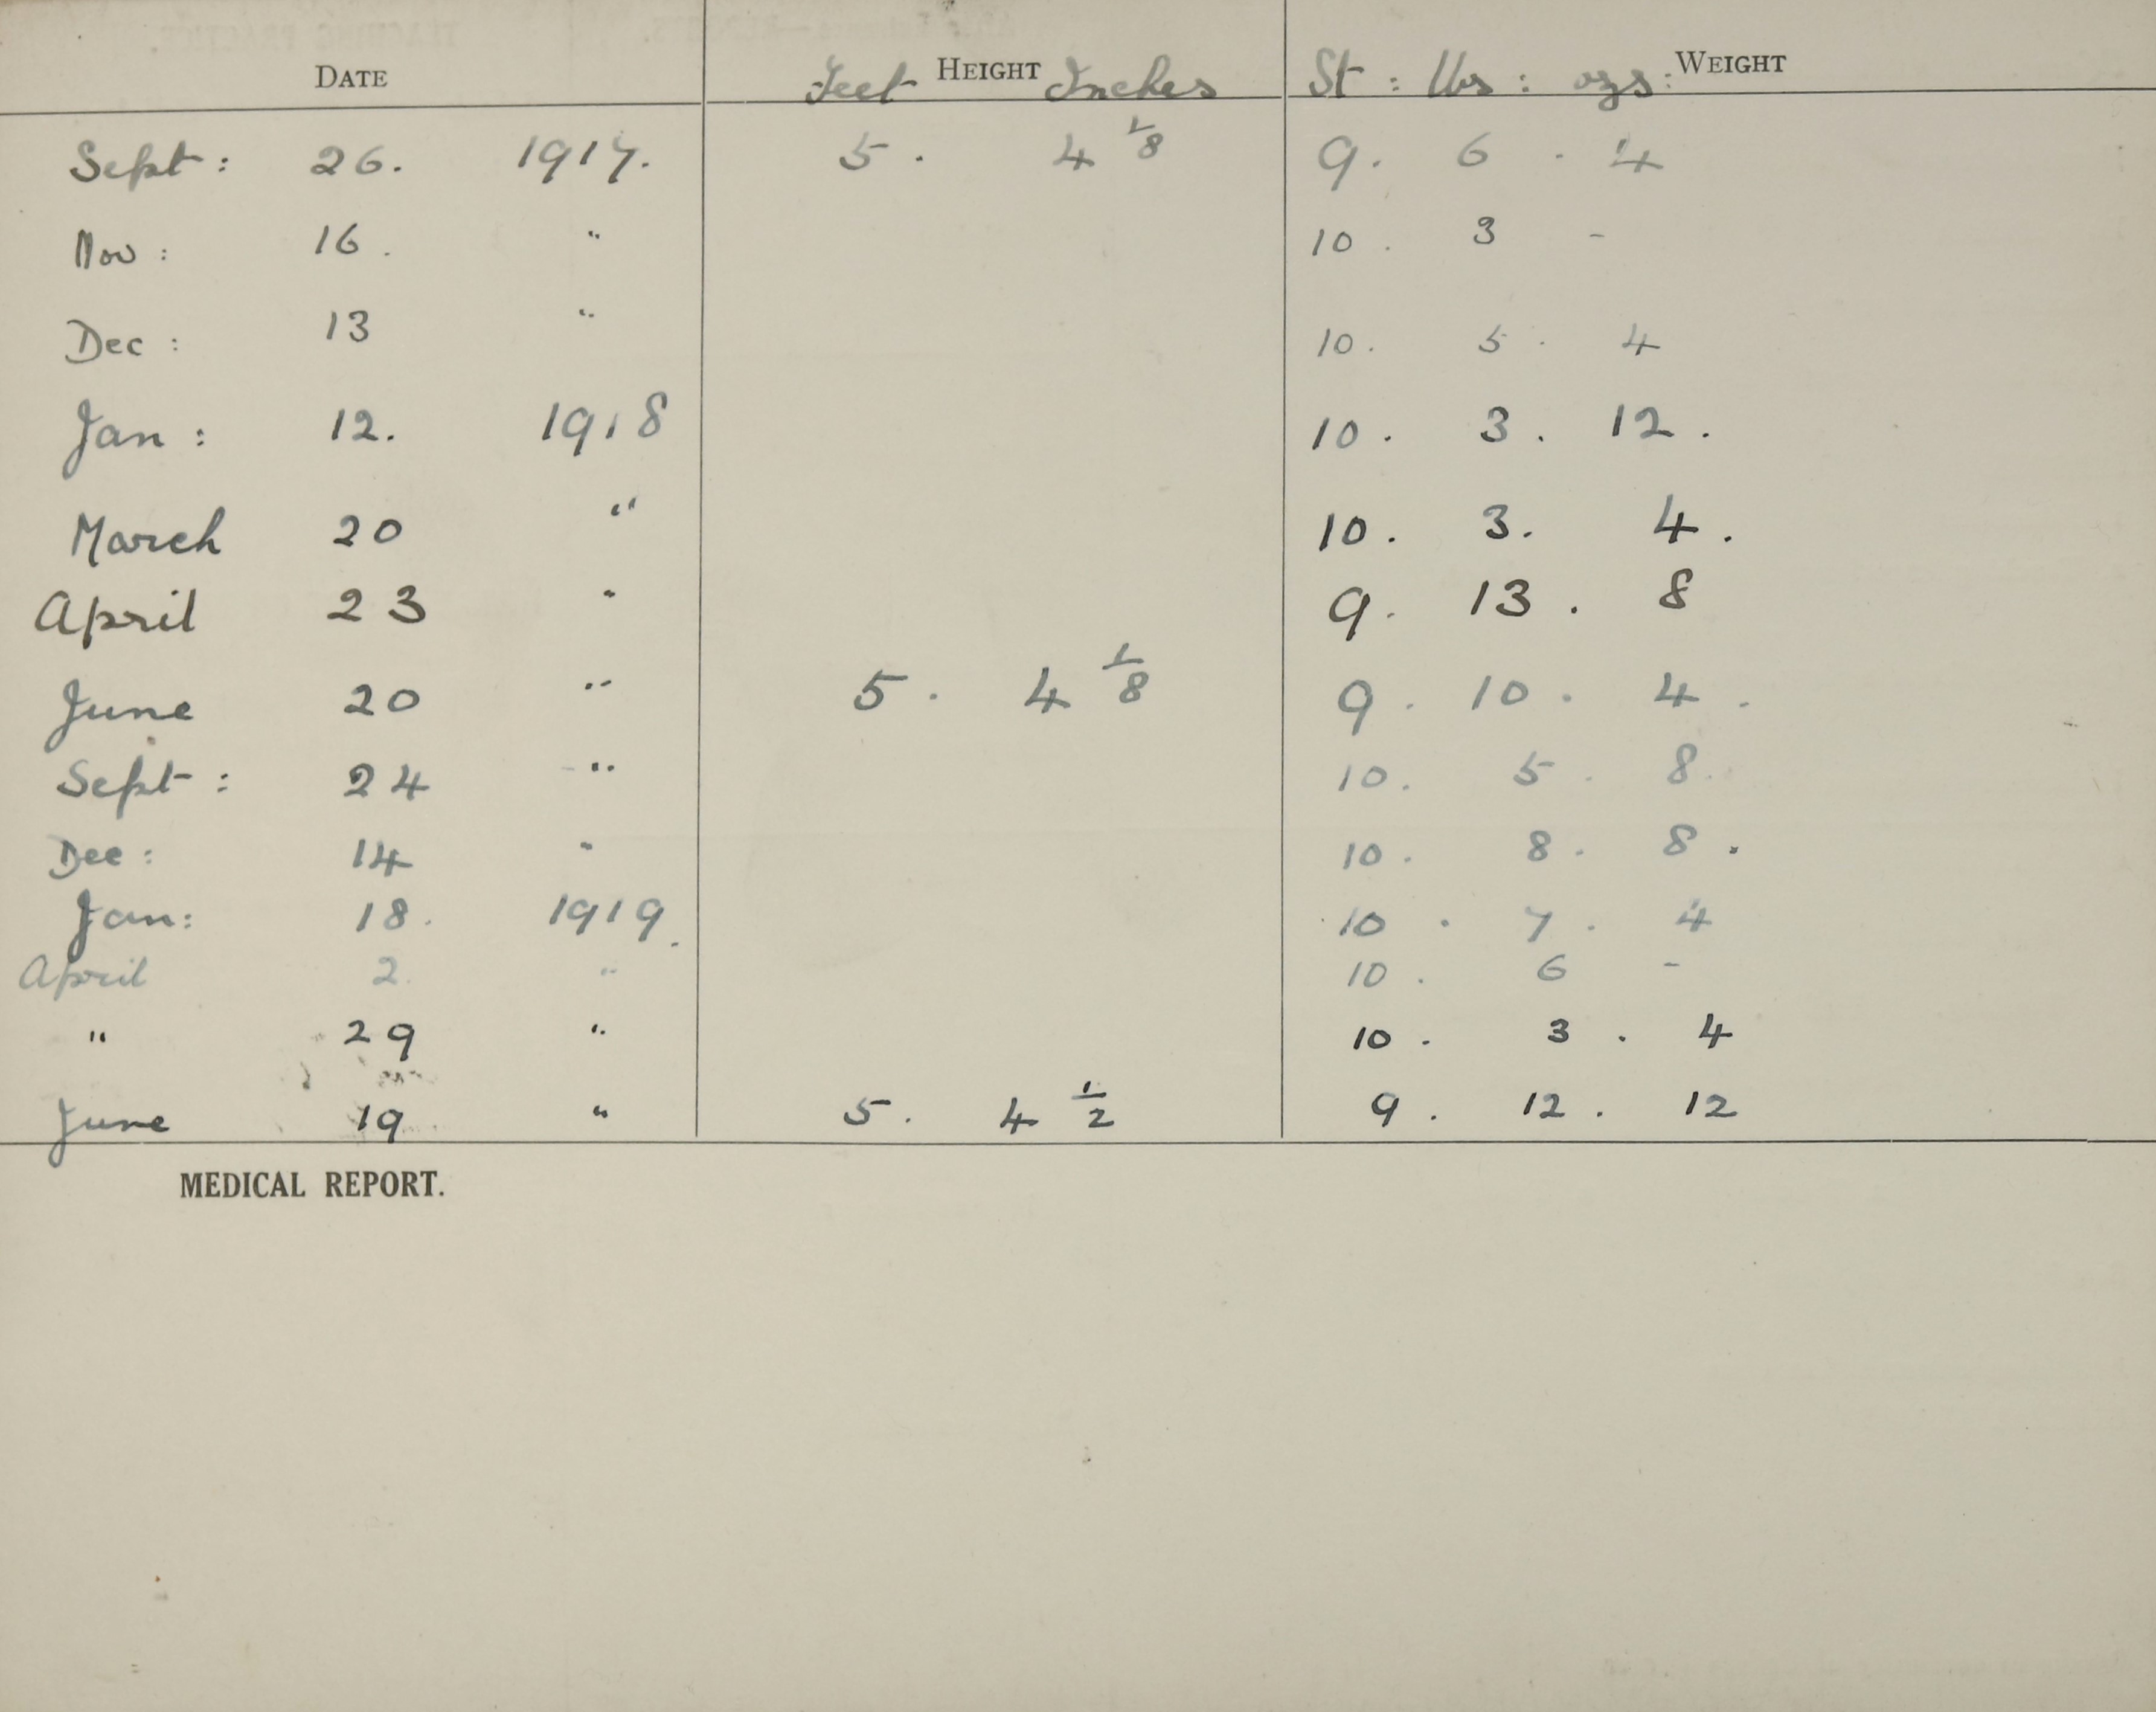 DATE Feet HEIGHT Inches St : lbs : ozs : WEIGHT
Sept : 26. 1917. 5 . 4 1/8 9 . 6 . 4
Nov : 16 . " 10 . 3 -
Dec : 13 " 10 . 5 . 4
Jan : 12. 1918 10 . 3 . 12 .
March 20 " 10 . 3 . 4 .
April 23 " 9 . 13 . 8
June 20 " 5 . 4 1/8 9 . 10 . 4 .
Sept : 24 " 10 . 5 . 8 .
Dec : 14 " 10 . 8 . 8 .
Jan : 18 . 1919 . 10 . 7 . 4
April 2 . " 10 . 6 -
" 29 " 10 . 3 . 4
June 19 " 5 . 4 1/2 9 . 12 . 12
MEDICAL REPORT.